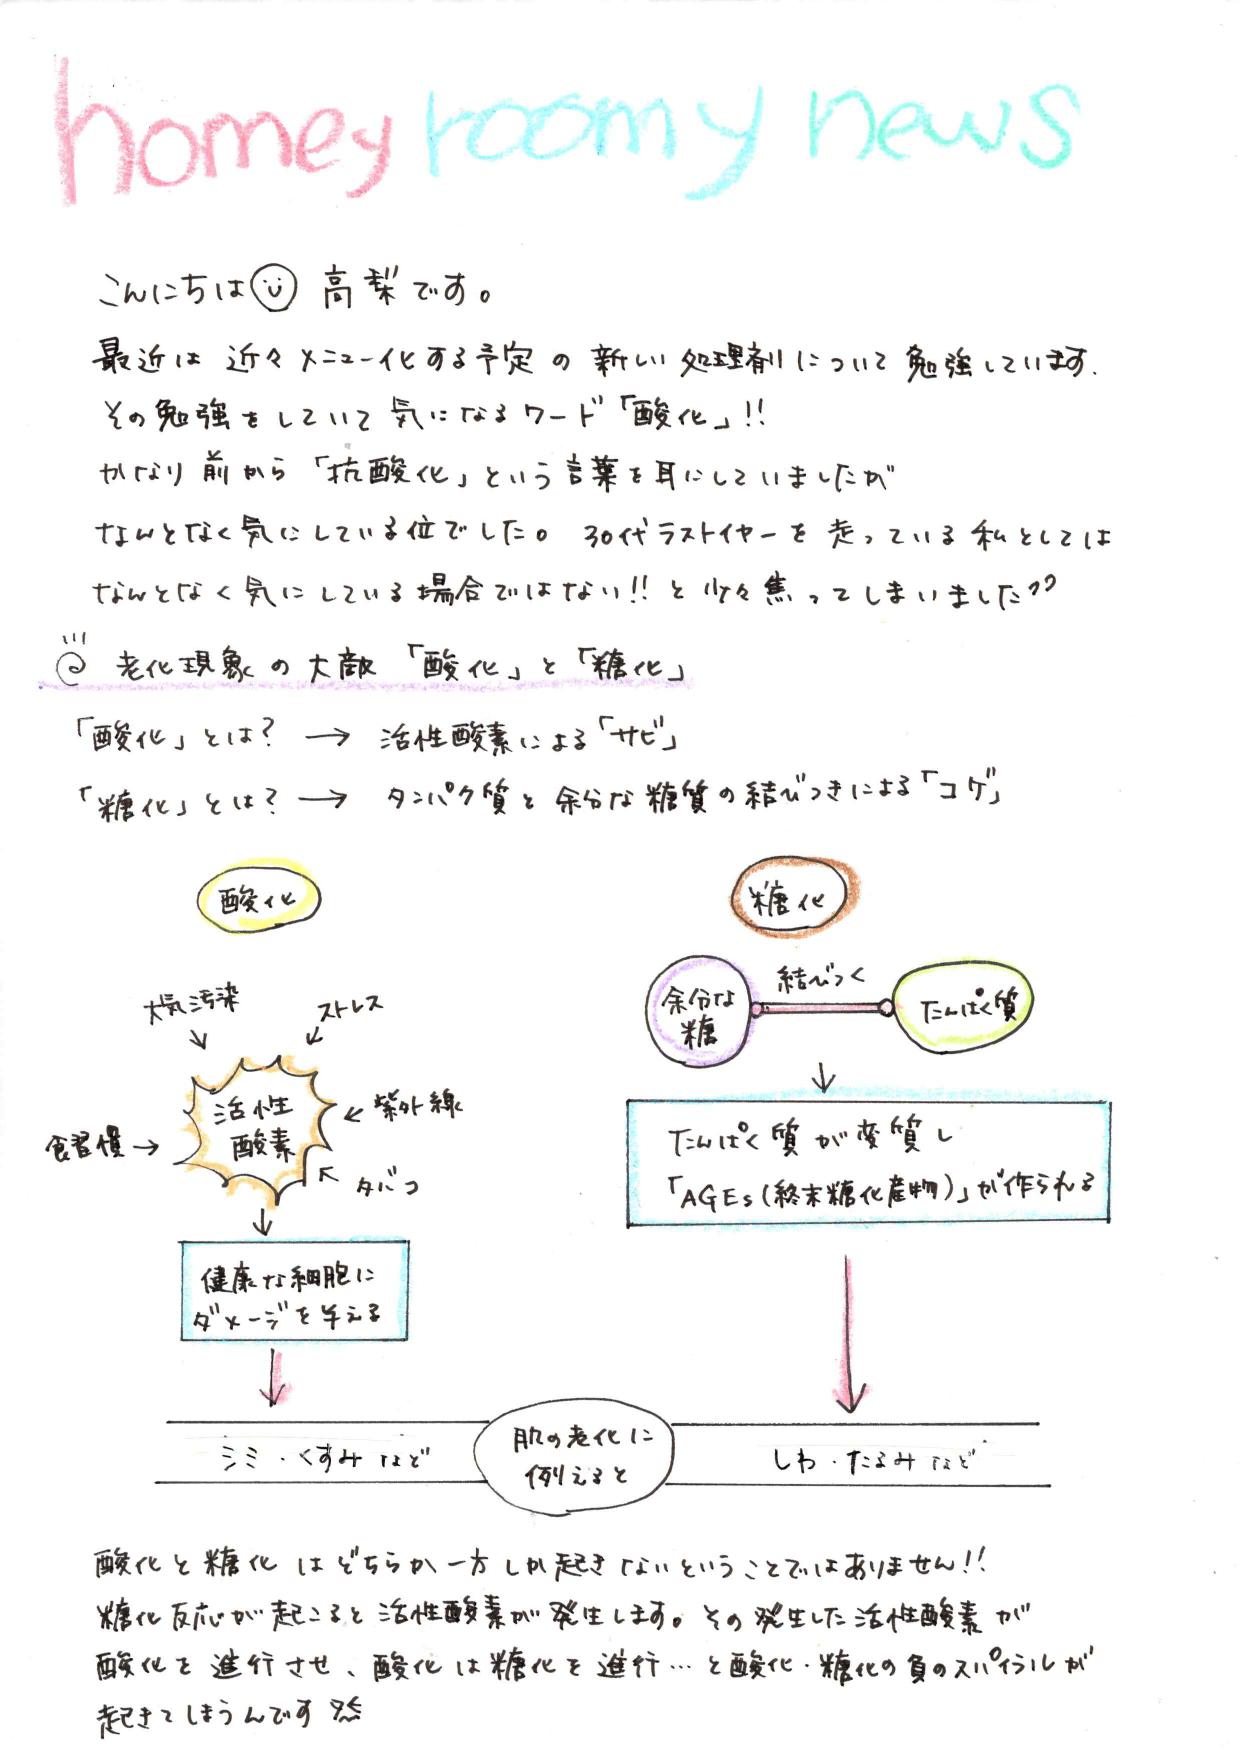 homey roomy news
こんにちは 高梨です。
最近は 近々メニュー化する予定の 新しい処理剤について勉強しています.
その勉強をしていて気になるワード「酸化」!!
かなり前から「抗酸化」という言葉を耳にしていましたが
なんとなく気にしている位でした。30代ラストイヤーを走っている私としては
なんとなく気にしている場合ではない!!と少々焦ってしまいました
老化現象の大敵「酸化」と「糖化」
「酸化」とは? → 活性酸素による「サビ」
「糖化」とは? → タンパク質と余分な糖質の結びつきによる「コゲ」
酸化
大気汚染
ストレス
紫外線
食習慣→
タバコ
活性
酸素
健康な細胞に
ダメージを与える
糖化
余分な
糖
結びつく
たんぱく質
たんぱく質が変質し
「AGEs(終末糖化産物)」が作られる
シミ・くすみなど
肌の老化に
例えると
しわ・たるみなど
酸化と糖化はどちらか一方しか起きないということではありません!!
糖化反応が起こると活性酸素が発生します。その発生した活性酸素が
酸化を進行させ、酸化は糖化を進行…と酸化・糖化の負のスパイラルが
起きてしまうんです